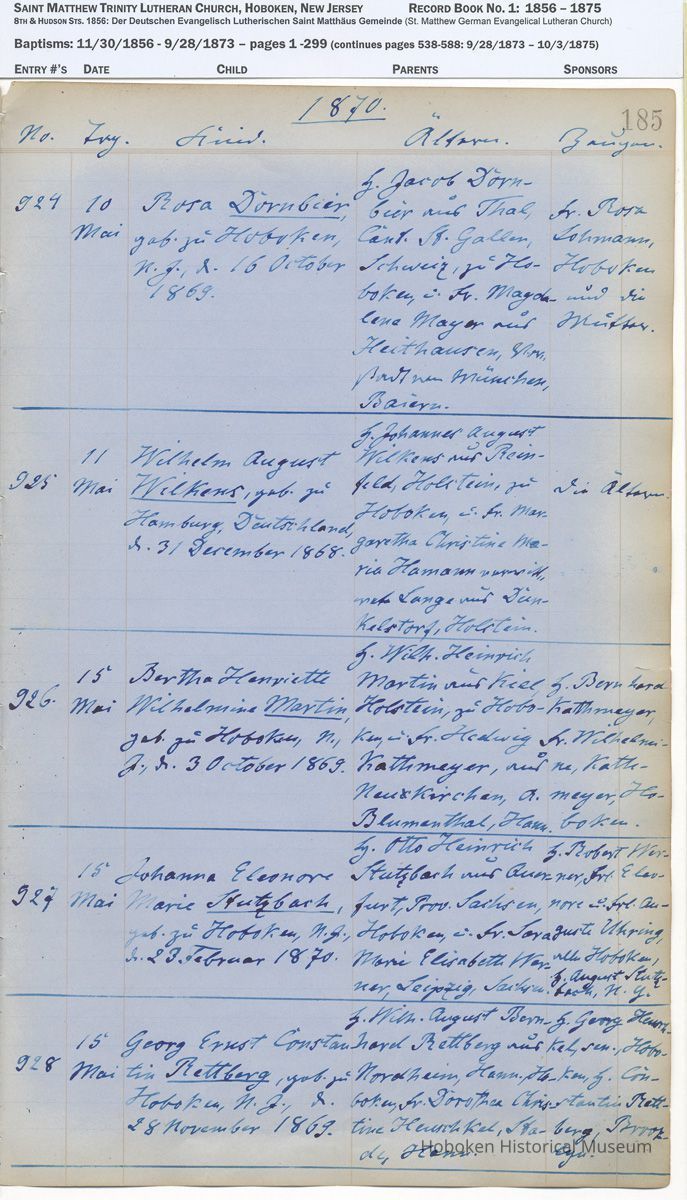 SAINT MATTHEW TRINITY LUTHERAN CHURCH, HOBOKEN, NEW JERSEY RECORD BOOK NO. 1: 1856 – 1875
8TH & HUDSON STS. 1856: Der Deutschen Evangelisch Lutherischen Saint Matthäus Gemeinde (St. Matthew German Evangelical Lutheran Church)
Baptisms: 11/30/1856 - 9/28/1873 – pages 1 -299 (continues pages 538-588: 9/28/1873 – 10/3/1875)
ENTRY #'S DATE CHILD PARENTS SPONSORS
1870. 185
No. Tag. Kind. Ältern. Zeugen.
924
10
Mai
Rosa Dörnbier,
geb. zu Hoboken,
N. J., d. 16 October
1869.
H. Jacob Dörn-
bier aus Thal,
Cant. St. Gallen,
Schweiz, zu Ho-
boken, u. Fr. Magda-
lena Mayer aus
Heithausen, Vor-
stadt von München,
Baiern.
Fr. Rosa
Lohmann,
Hoboken
und die
Mutter.
925
11
Mai
Wilhelm August
Wilkens, geb. zu
Hamburg, Deutschland,
d. 31 December 1868.
H. Johannes August
Wilkens aus Rein-
feld, Holstein, zu
Hoboken, u. Fr. Mar-
garetha Christine Ma-
ria Hamann verwitt-
wete Lange aus Dün-
kelstorf, Holstein.
die Ältern.
926.
15
Mai
Bertha Henriette
Wilhelmine Martin,
geb. zu Hoboken, N.
J., d. 3 October 1869.
H. Wilh. Heinrich
Martin aus Kiel,
Holstein, zu Hobo-
ken, u. Fr. Hedwig
Kathmeyer, aus
Neuekirchen, A.
Blumenthal, Hann.
H. Bernhard
Kathmeyer,
Fr. Wilhelmi-
ne, Kath-
meyer, Ho-
boken.
927
15
Mai
Johanna Eleonore
Marie Stutzbach,
geb. zu Hoboken, N. J.,
d. 23 Februar 1870.
H. Otto Heinrich
Stutzbach aus Quer-
furt, Prov. Sachsen,
Hoboken, u. Fr. Sara
Marie Elisabeth Wer-
ner, Leipzig, Sachsen.
H. Robert Wer-
ner, Frl. Eleo-
nore u. Frl. Au-
guste Uhring,
alle Hoboken,
H. August Stutz-
bach, N. Y.
928
15
Mai
Georg Ernst Constan
tin Rettberg, geb. zu
Hoboken, N. J., d.
28 November 1869.
H. Wilh. August Bern-
hard Rettberg aus
Nordheim, Hann. Ho-
boken, Fr. Dorothea Chris-
tine Heuschkel, Sta-
de, Hann.
H. Georg Heusch
kel, sen., Hobo-
ken, H. Con-
stantin Rett-
berg, Brook-
lyn.
Hoboken Historical Museum